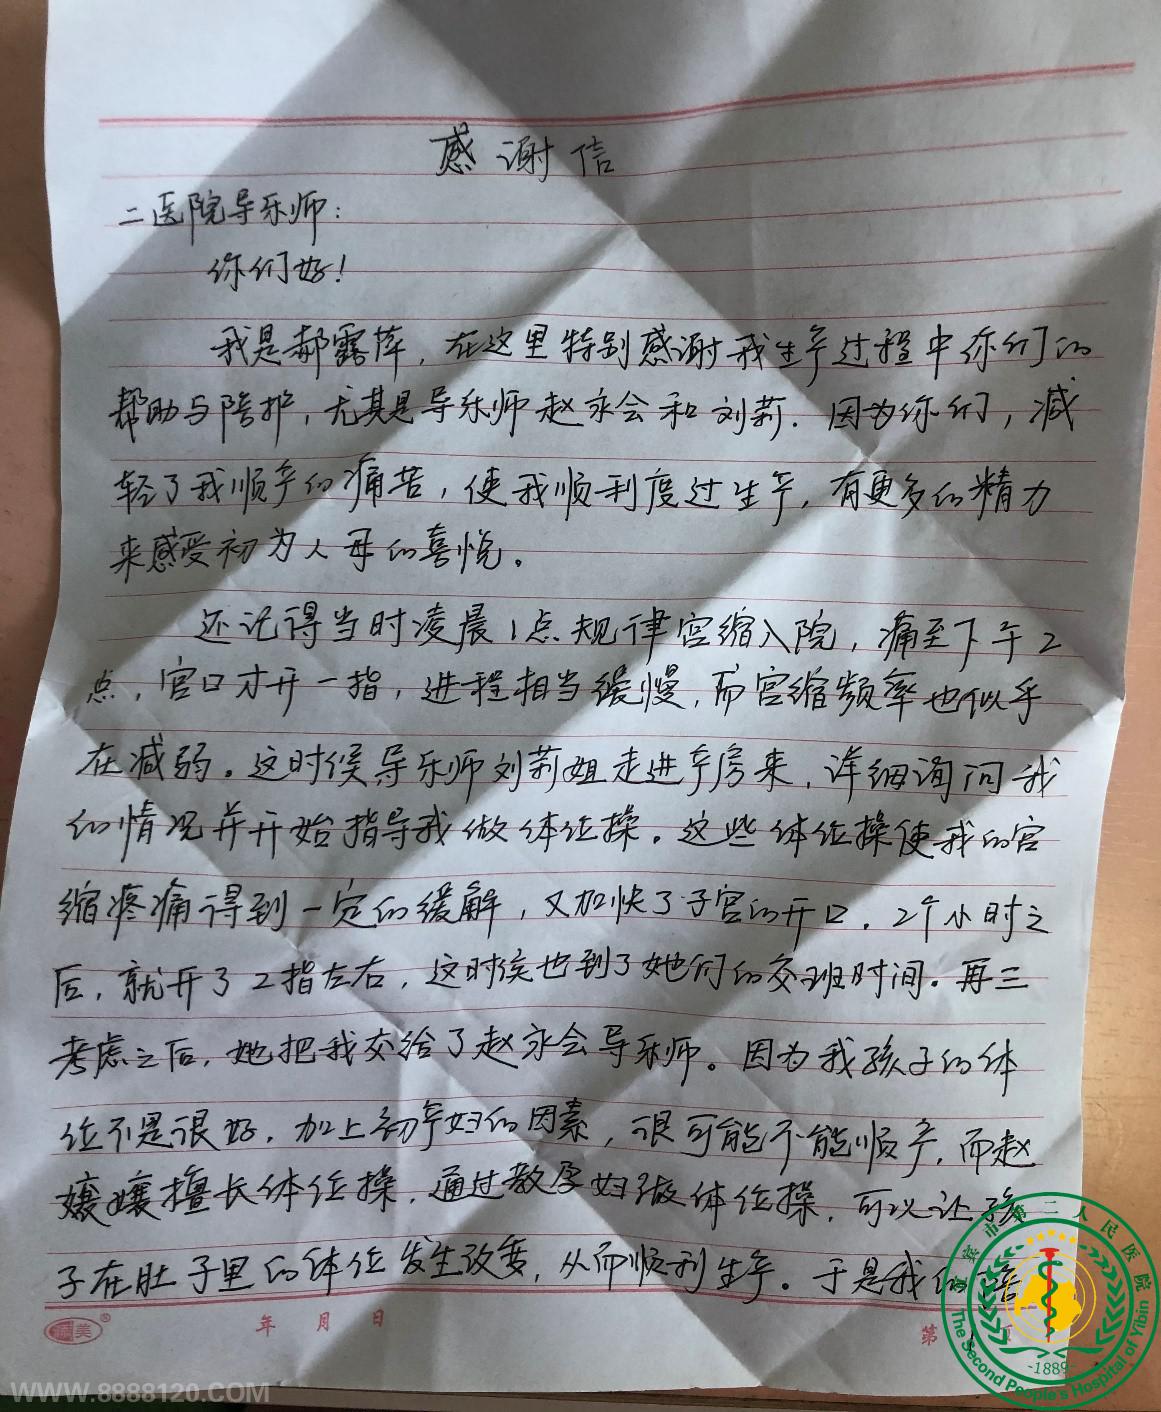 感谢信
二医院导乐师：
你们好！
我是郝露萍，在这里特别感谢我生产过程中你们的
帮助与陪护，尤其是导乐师赵永会和刘莉．因为你们，减
轻了我顺产的痛苦，使我顺利度过生产，有更多的精力
来感受初为人母的喜悦。
还记得当时凌晨1点规律宫缩入院，痛至下午2
点，宫口才开一指，进程相当缓慢，而宫缩频率也似乎
在减弱。这时候导乐师刘莉姐走进产房来，详细询问我
的情况并开始指导我做体位操。这些体位操使我的宫
缩疼痛得到一定的缓解，又加快了子宫的开口．2个小时之
后，就开了2指左右，这时侯也到了她们的交班时间。再三
考虑之后，她把我交给了赵永会导乐师。因为我孩子的体
位不是很好，加上初产妇的因素，很可能不能顺产，而赵
嬢嬢擅长体位操，通过教孕妇做体位操，可以让孩
子在肚子里的体位发生改变，从而顺利生产。于是我的
年 月 日
第 页
福美®
宜宾市第二人民医院
The Second People's Hospital of Yibin
-1889-
WWW.8888120.COM